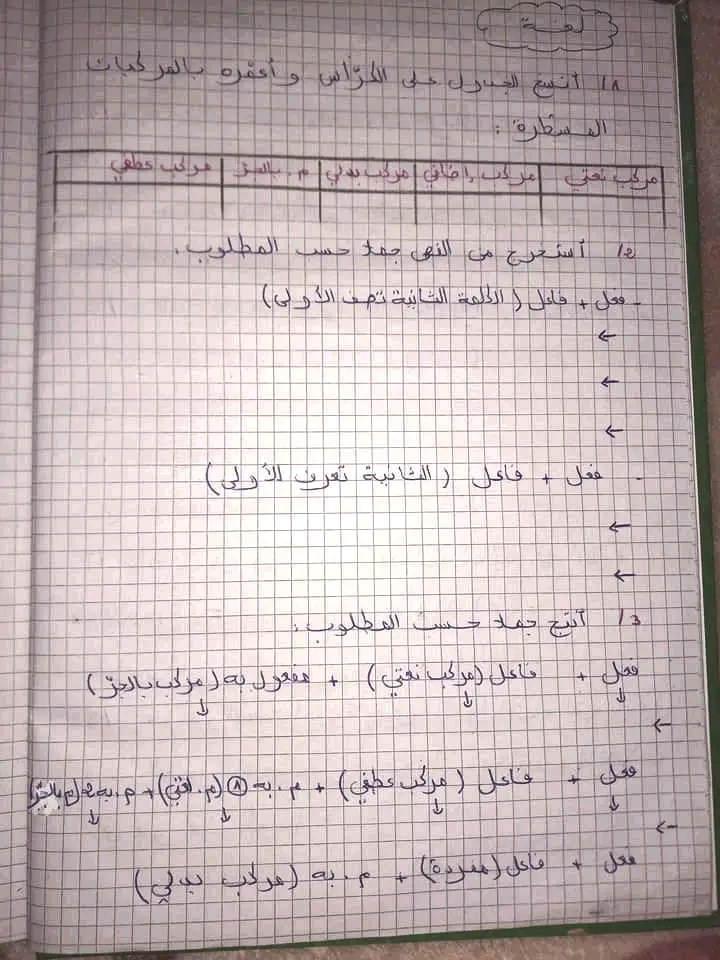 لغة
1/ أنسخ الجدول على الكرّاس وأعمّره بالمركبات
المسطّرة :
مركب نعتي | مركب إضافي | مركب بدلي | م. بالجرّ | مركب عطفي
2/ أستخرج من النص جملا حسب المطلوب.
- فعل + فاعل (الكلمة الثانية تصف الأولى)
←
←
←
- فعل + فاعل (الثانية تعرف الأولى)
←
←
3/ أنتج جملا حسب المطلوب:
فعل + فاعل (مركب نعتي) + مفعول به (مركب بالجرّ)
↓ ↓ ↓
←
فعل + فاعل (مركب عطفي) + م. به ① (م. نعتي) + م. به 2 (م بالجرّ)
↓ ↓ ↓ ↓
←
فعل + فاعل (مفردة) + م. به (مركب بدلي)